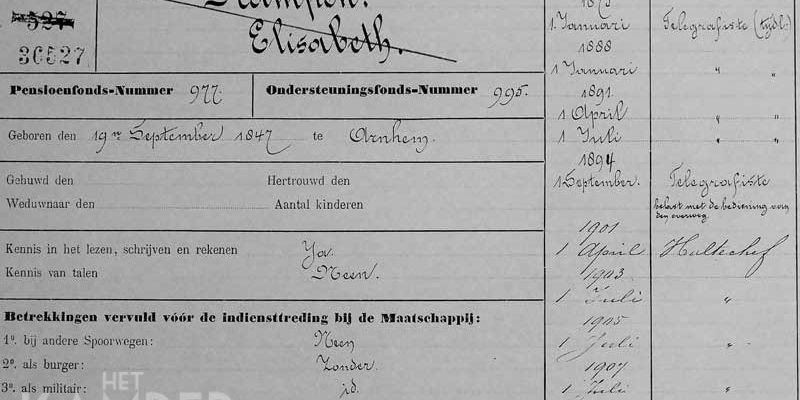 527
36527
Elisabeth.
Pensioenfonds-Nummer 977.
Ondersteuningsfonds-Nummer 995.
Geboren den 19en September 1847 te Arnhem.
Gehuwd den
Hertrouwd den
Weduwnaar den
Aantal kinderen
Kennis in het lezen, schrijven en rekenen Ja.
Kennis van talen Neen.
Betrekkingen vervuld vóór de indiensttreding bij de Maatschappij:
1o. bij andere Spoorwegen: Neen
2o. als burger: Zonder.
3o. als militair: id.
HET
1 Januari Telegrafiste (tijdl.)
1888
1 Januari " "
1891
1 April " "
1 Juli " "
1894
1 September. Telegrafiste
belast met de bediening van
den overweg.
1901
1 April Haltechef
1903
1 Juli "
1905
1 Juli "
1907
1 Juli "